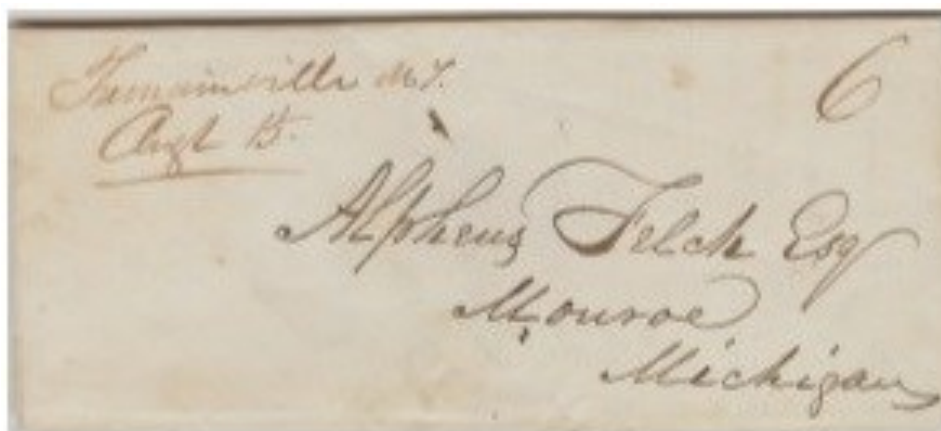 Tremainville M.T.
6
Augt 15.
Alpheus Felch Esq
Monroe
Michigan